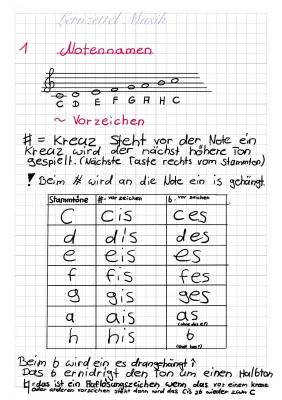 Lernzettel Musik
1 Notennamen
C D E F G A H C
~ Vorzeichen
# = Kreuz Steht vor der Note ein
Kreuz wird der nächst höhere Ton
gespielt. (Nächste Taste rechts vom Stammton)
! Beim # wird an die Note ein is gehängt.
Stammtöne #-vorzeichen b-vorzeichen
C cis ces
d dis des
e eis es
f fis fes
g gis ges
a ais as
(ohne das e!)
h his b
Beim b wird ein es drangehängt!
Das b ernidrigt den Ton um einen Halbton
♮: das ist ein Auflösungszeichen wenn das vor einem kreuz
oder anderen vorzeichen steht dann wird das Cis zb wieder zum C